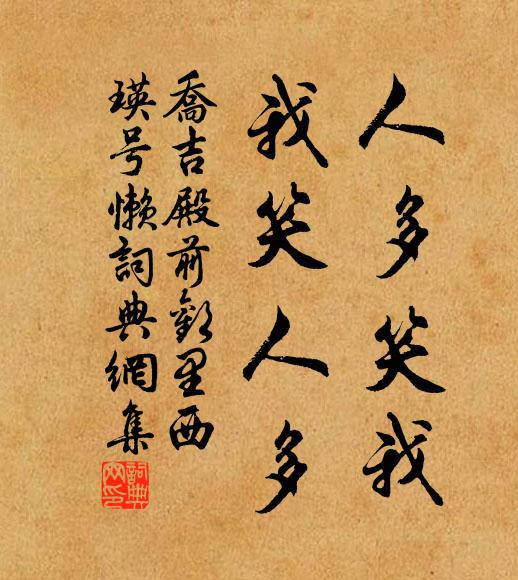 人多笑我
我笑人多
喬吉殿前歡里西
瑛号懒詞典網集
詞典
网印